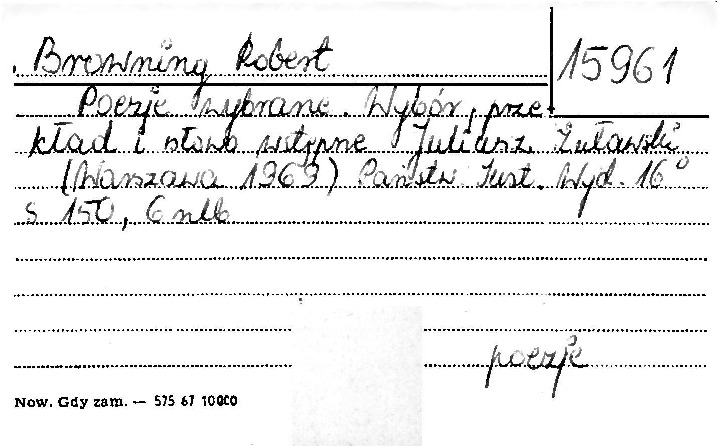 . Browning Robert
15961
Poezje wybrane. Wybór, prze
kład i słowo wstępne Juliusz Żuławski
(Warszawa 1969) Państw Inst. Wyd. 16°
s 150, 6 nlb
poezje
Now. Gdy zam. — 575 67 10000